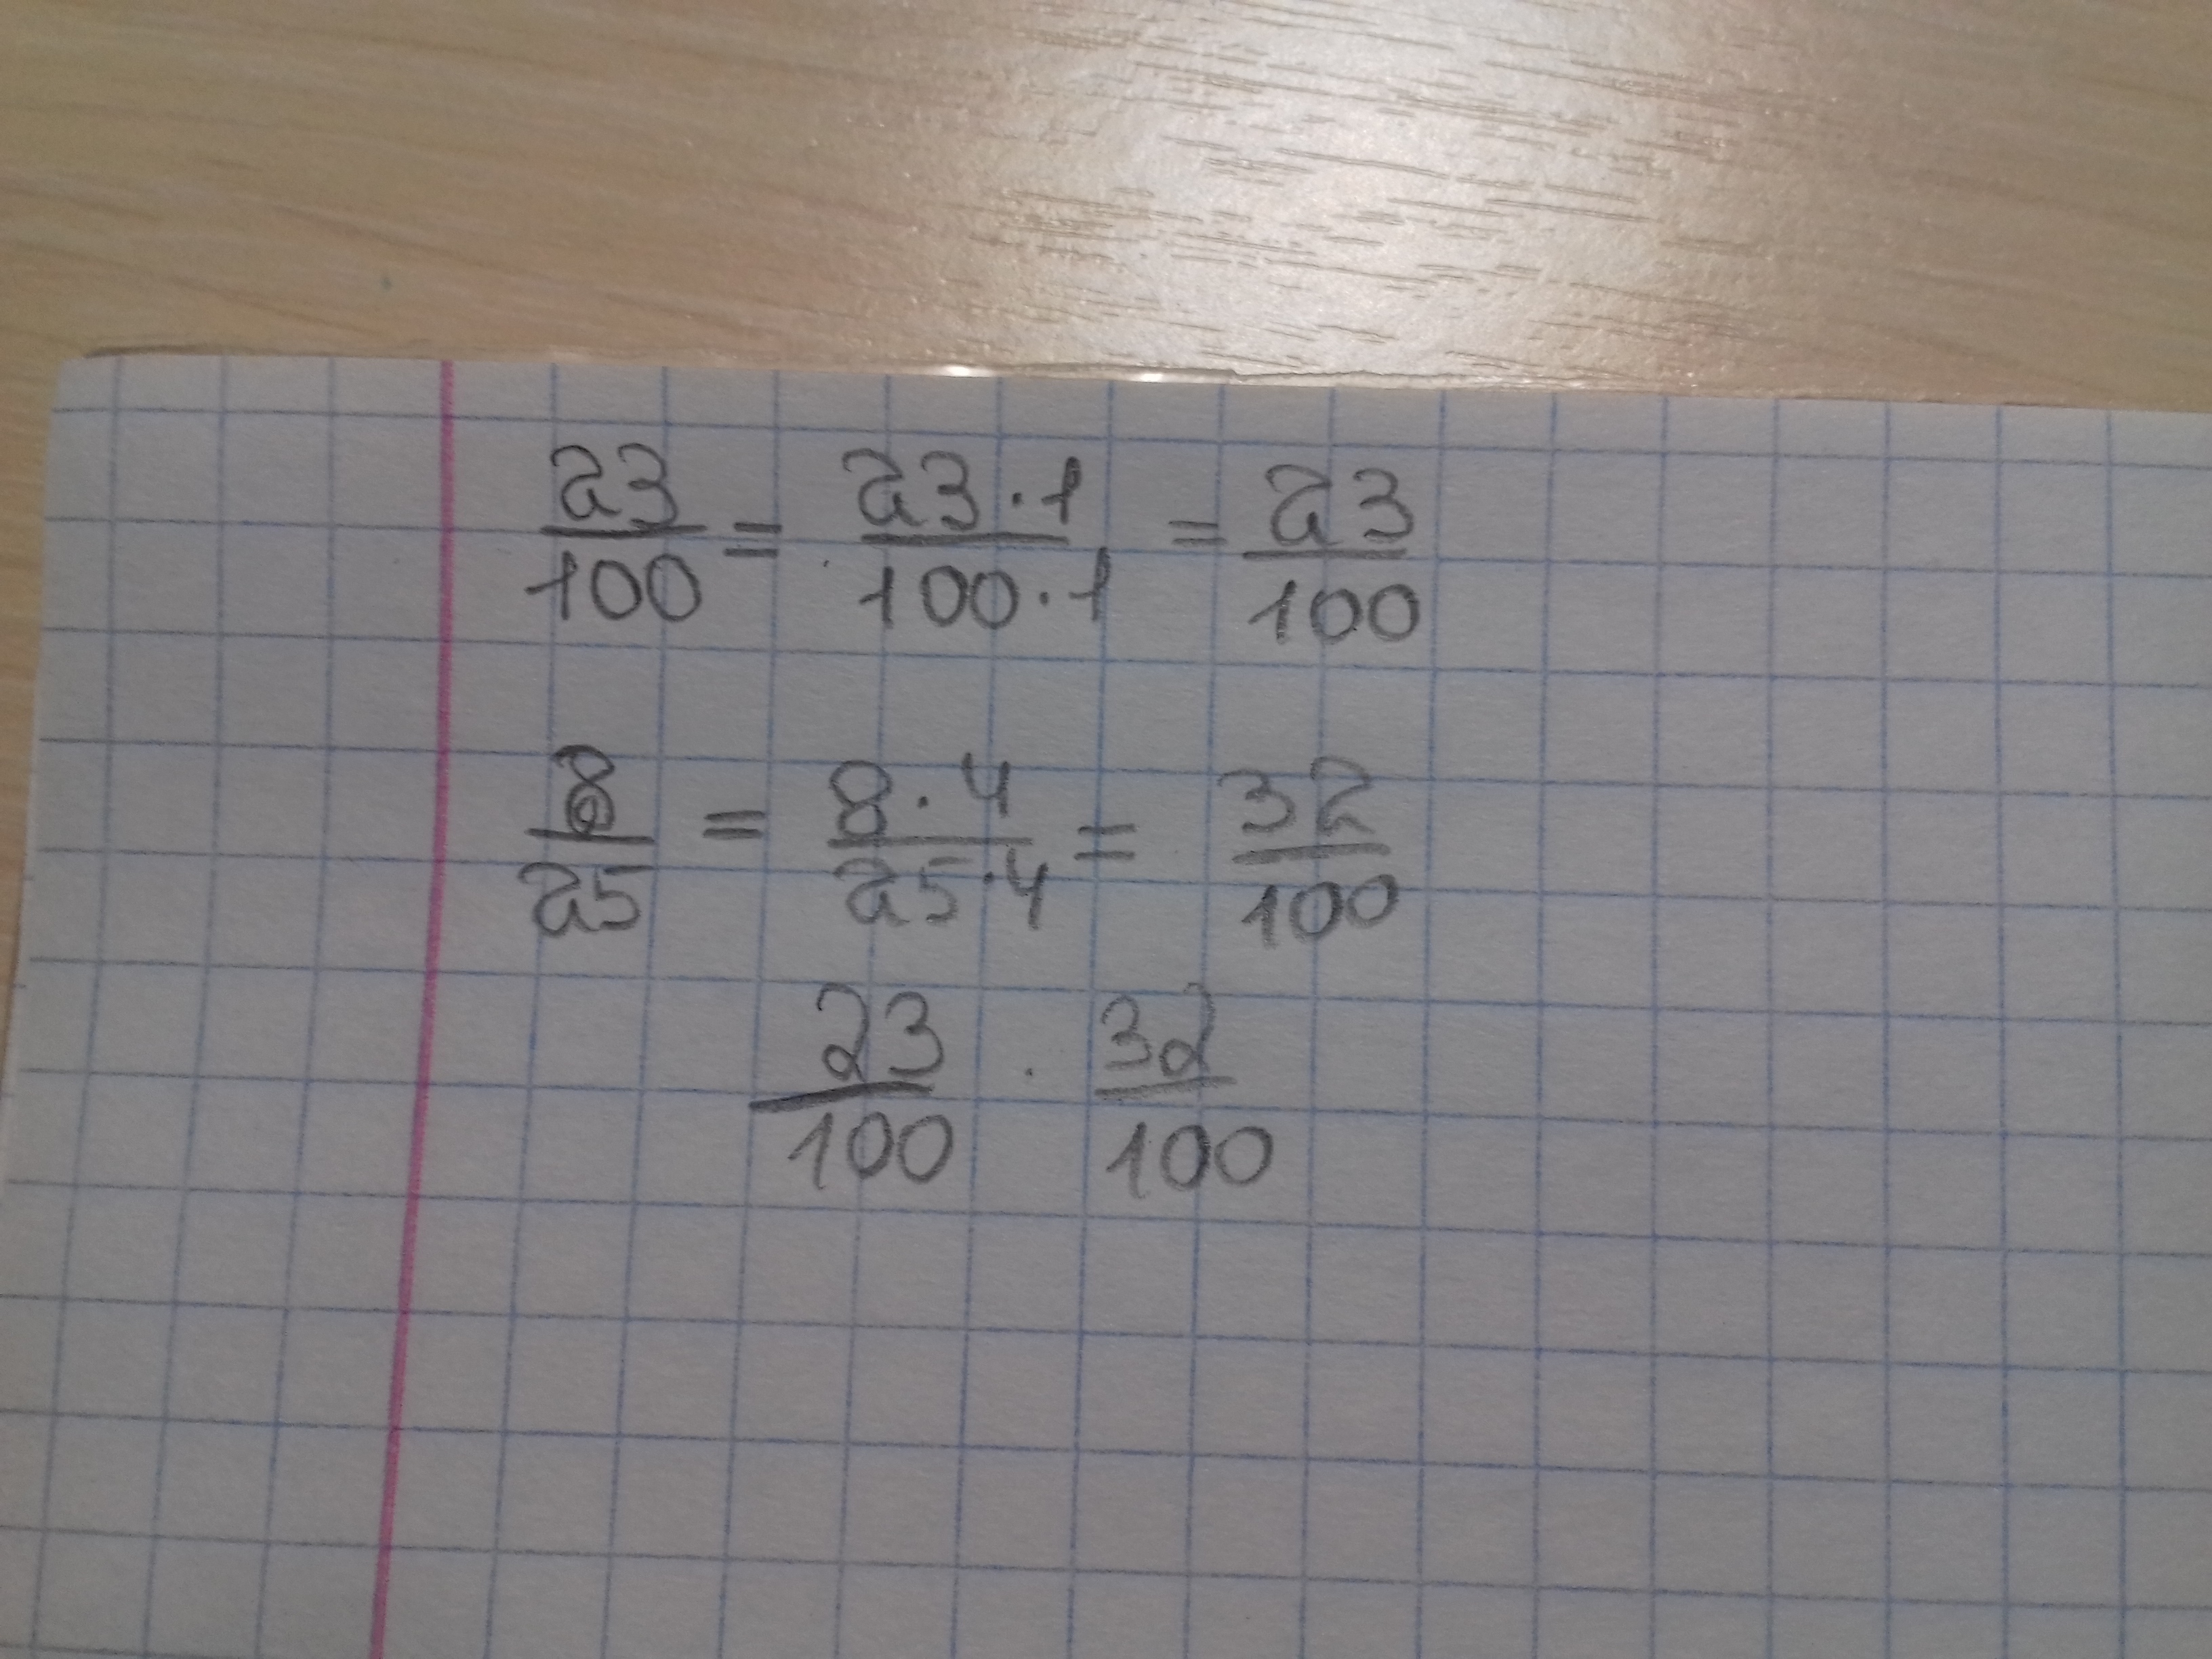 23/100 = 23·1/100·1 = 23/100
8/25 = 8·4/25·4 = 32/100
23/100 · 32/100